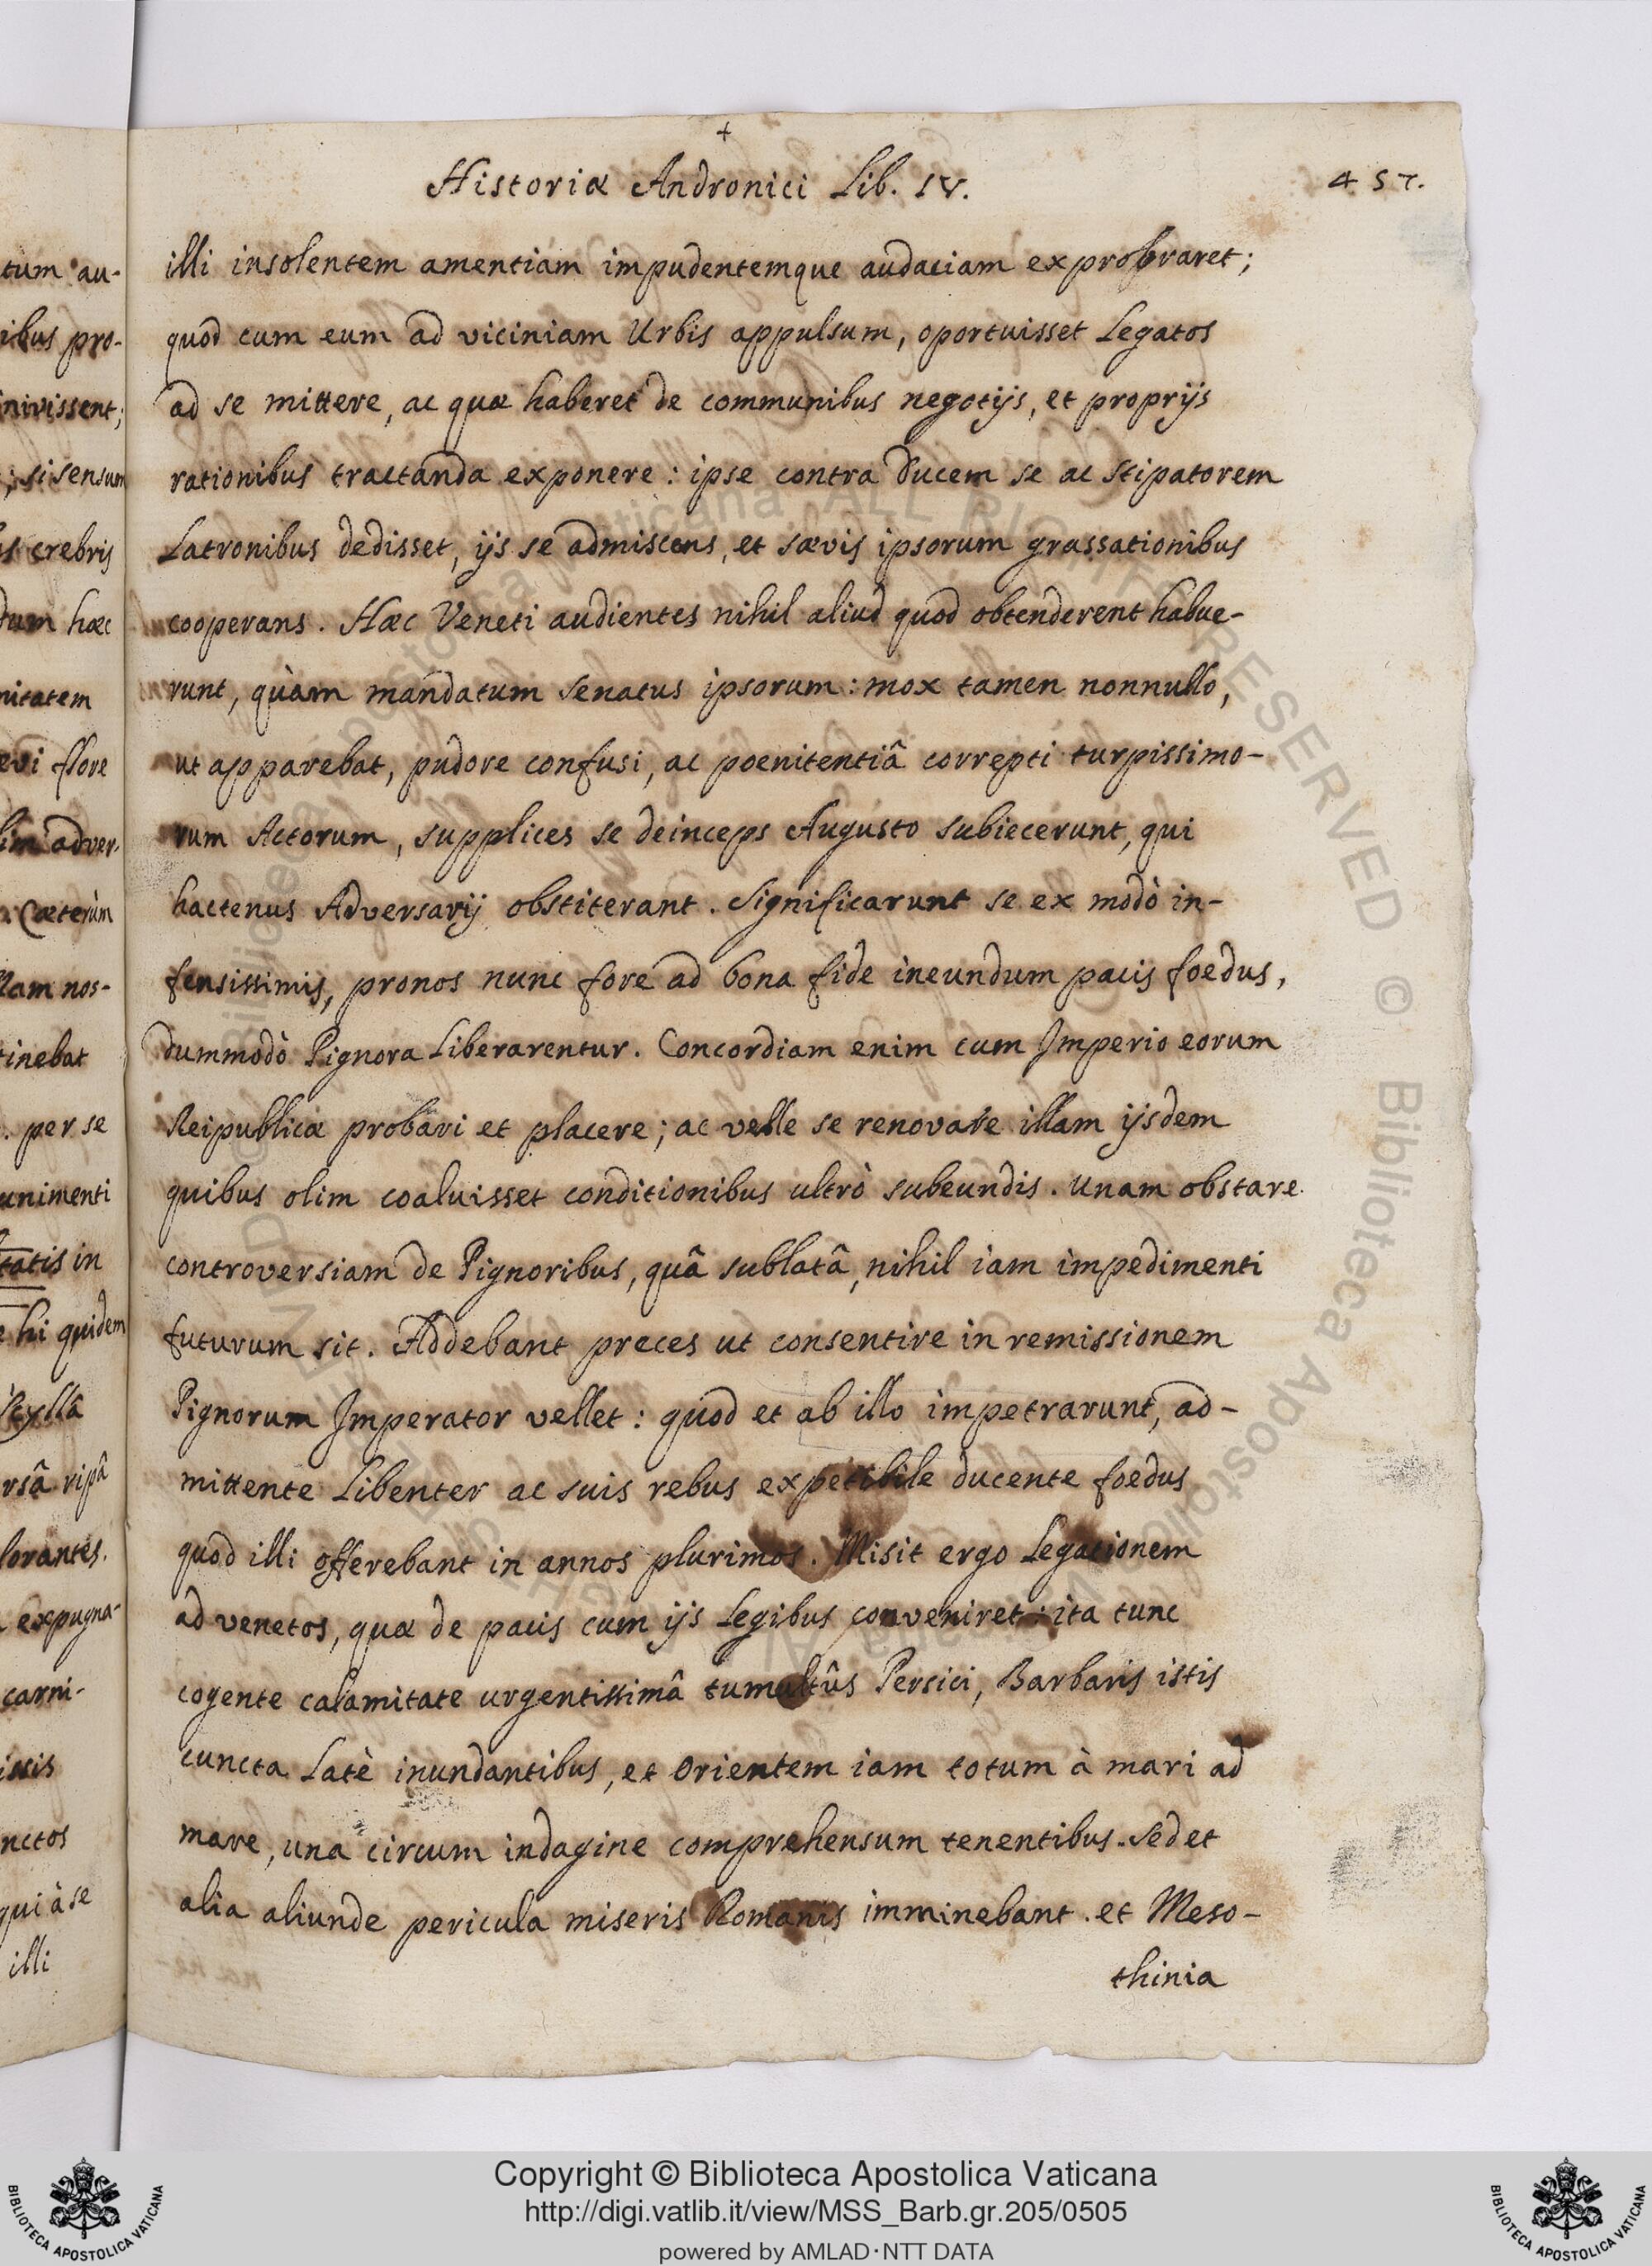 +
Historiæ Andronici Lib. IV.
457.
illi insolentem amentiam impudentemque audaciam exprobraret;
quod cum eum ad viciniam Urbis appulsum, oportuisset Legatos
ad se mittere, ac quæ haberet de communibus negotijs, et proprijs
rationibus tractanda exponere: ipse contra Ducem se ac stipatorem
Latronibus dedisset, ijs se admiscens, et sævis ipsorum grassationibus
cooperans. Hæc Veneti audientes nihil aliud quod obtenderent habue-
runt, quàm mandatum Senatus ipsorum: mox tamen nonnullo,
ut apparebat, pudore confusi, ac poenitentiâ correpti turpissimo-
rum Actorum, supplices se deinceps Augusto subiecerunt, qui
hactenus Adversarij obstiterant. Significarunt se ex modò in-
fensissimis, pronos nunc fore ad bona fide ineundum pacis foedus,
dummodò Pignora Liberarentur. Concordiam enim cum Imperio eorum
Reipublicæ probari et placere; ac velle se renovare illam ijsdem
quibus olim coaluisset conditionibus ultrò subeundis. Unam obstare
controversiam de Pignoribus, quâ sublatâ, nihil iam impedimenti
futurum sit. Addebant preces ut consentire in remissionem
Pignorum Imperator vellet: quod et ab illo impetrarunt, ad-
mittente Libenter ac suis rebus expetibile ducente foedus
quod illi offerebant in annos plurimos. Misit ergo Legationem
ad venetos, quæ de pacis cum ijs Legibus conveniret: ita tunc
cogente calamitate urgentissimâ tumultûs Persici, Barbaris istis
cuncta Latè inundantibus, et Orientem iam totum à mari ad
mare, una circum indagine comprehensum tenentibus. Sed et
alia aliunde pericula miseris Romanis imminebant. et Meso-
thinia
tum au-
ibus pro-
inivissent;
; si sensum
crebris
dum hæc
nitatem
ævi flore
lim adver-
Cæterùm
nos-
tinebat
per se
unimenti
tatis in
hi quidem
Scyllâ
rsâ ripâ
lorantes.
expugna-
carni-
issis
nctos
qui à se
illi
Copyright © Biblioteca Apostolica Vaticana
http://digi.vatlib.it/view/MSS_Barb.gr.205/0505
powered by AMLAD·NTT DATA
BIBLIOTECA APOSTOLICA VATICANA
BIBLIOTECA APOSTOLICA VATICANA